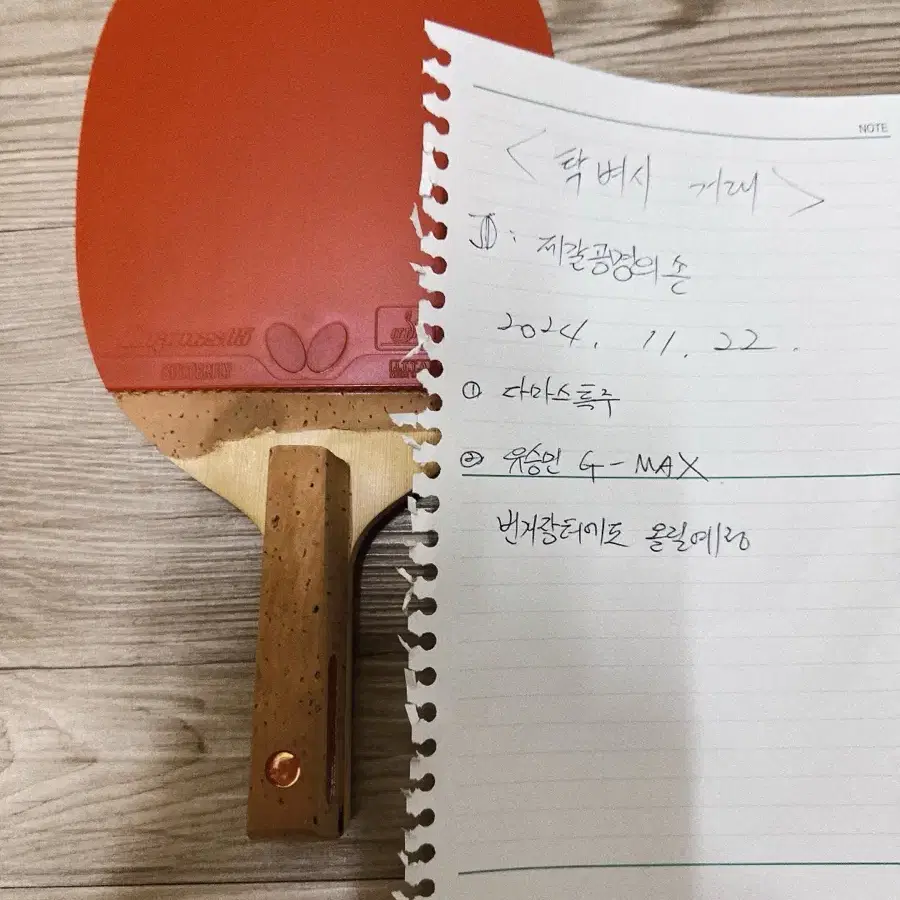 NOTE
<탁벼시 거래>
ID: 제갈공명의손
2024. 11. 22.
① 다마스특주
② 유승민 G-MAX
번개장터에도 올릴예정
BUTTERFLY